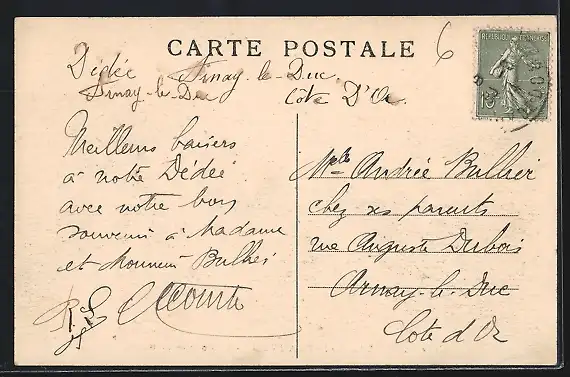 CARTE POSTALE
6
REPUBLIQUE FRANÇAISE
15
Dédée Arnay-le-Duc.
Arnay-le-Duc Côte D'Or.
Meilleurs baisers
à notre Dédée
avec notre bon
souvenir à Madame
et Monsieur Bulher
Mlle Andrée Bulher
chez ses parents
rue Auguste Dubois
Arnay-le-Duc
Côte d'Or